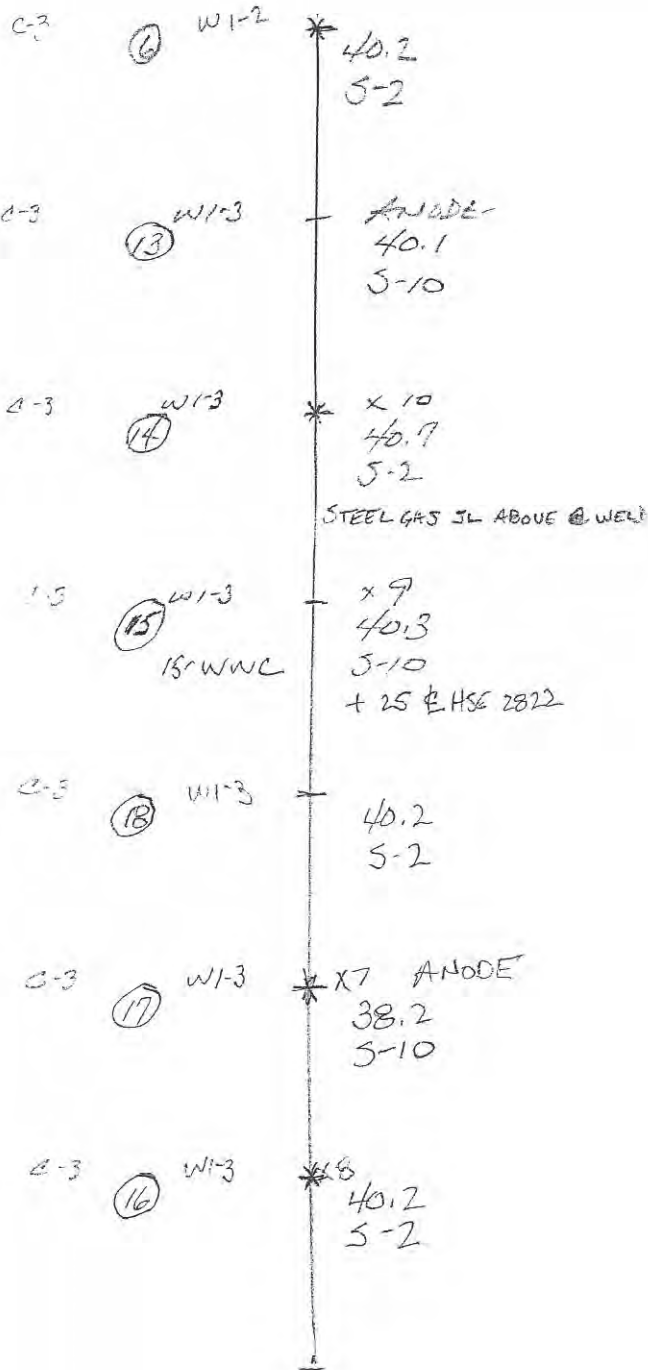 C-3 6 W1-2
40.2
S-2
C-3 13 W1-3 ANODE
40.1
S-10
C-3 14 W1-3 X 10
40.7
S-2
STEEL GAS SL ABOVE @ WELD
15 W1-3 X 9
40.3
15-WWC S-10
+ 25 ℄ HSE 2822
C-3 18 W1-3
40.2
S-2
C-3 17 W1-3 X7 ANODE
38.2
S-10
C-3 16 W1-3 X8
40.2
S-2